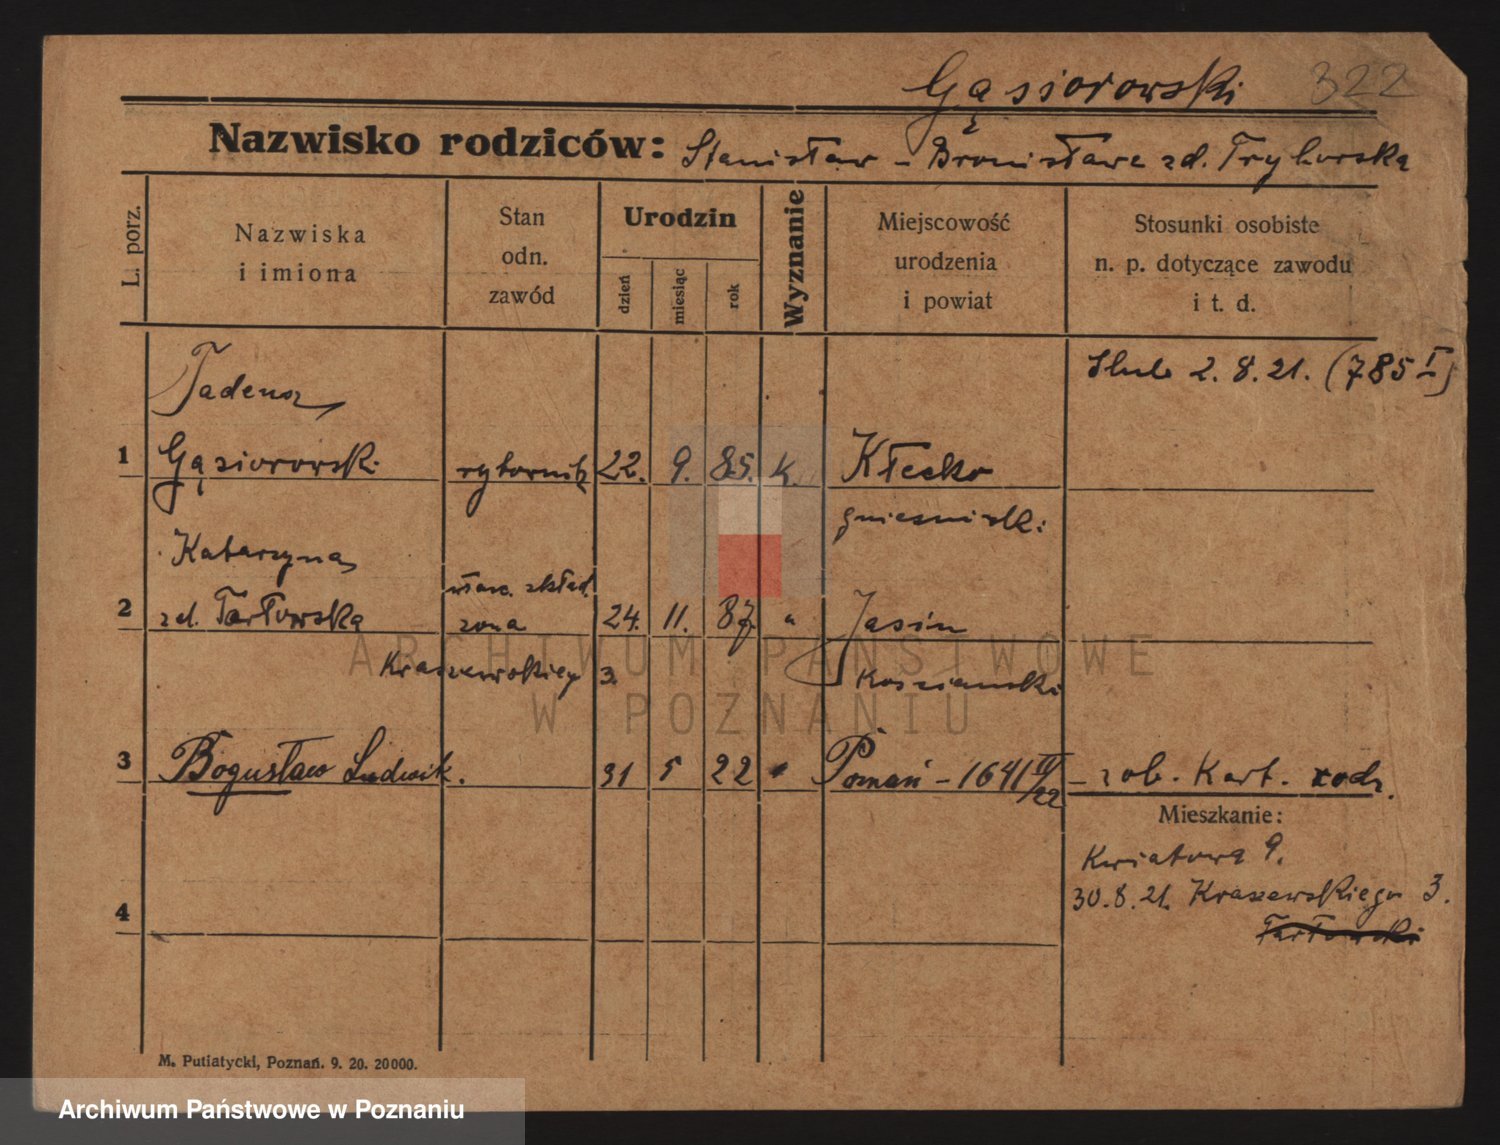 Gąsiorowski 322
Nazwisko rodziców: Stanisław - Bronisława zd. Tryborska
L. porz.
Nazwiska
i imiona
Stan
odn.
zawód
Urodzin
dzień
miesiąc
rok
Wyznanie
Miejscowość
urodzenia
i powiat
Stosunki osobiste
n. p. dotyczące zawodu
i t. d.
Ślub 2. 8. 21. (785 I)
Tadeusz
1 Gąsiorowski 22. 9. 85. K. Kłecko
gnieźnieński
Katarzyna
właśc. skład.
2 zd. Tarłowska żona 24. 11. 87. " Jasin
Kraszewskiego 3. Kościański
3 Bogusław Ludwik. 31 5 22 " Poznań - 1641 II/22 - zob. Kart. rodz.
Mieszkanie:
Kwiatowa 9.
30. 8. 21. Kraszewskiego 3.
Tarłowski
4
M. Putiatycki, Poznań. 9. 20. 20000.
ARCHIWUM PAŃSTWOWE
W POZNANIU
Archiwum Państwowe w Poznaniu